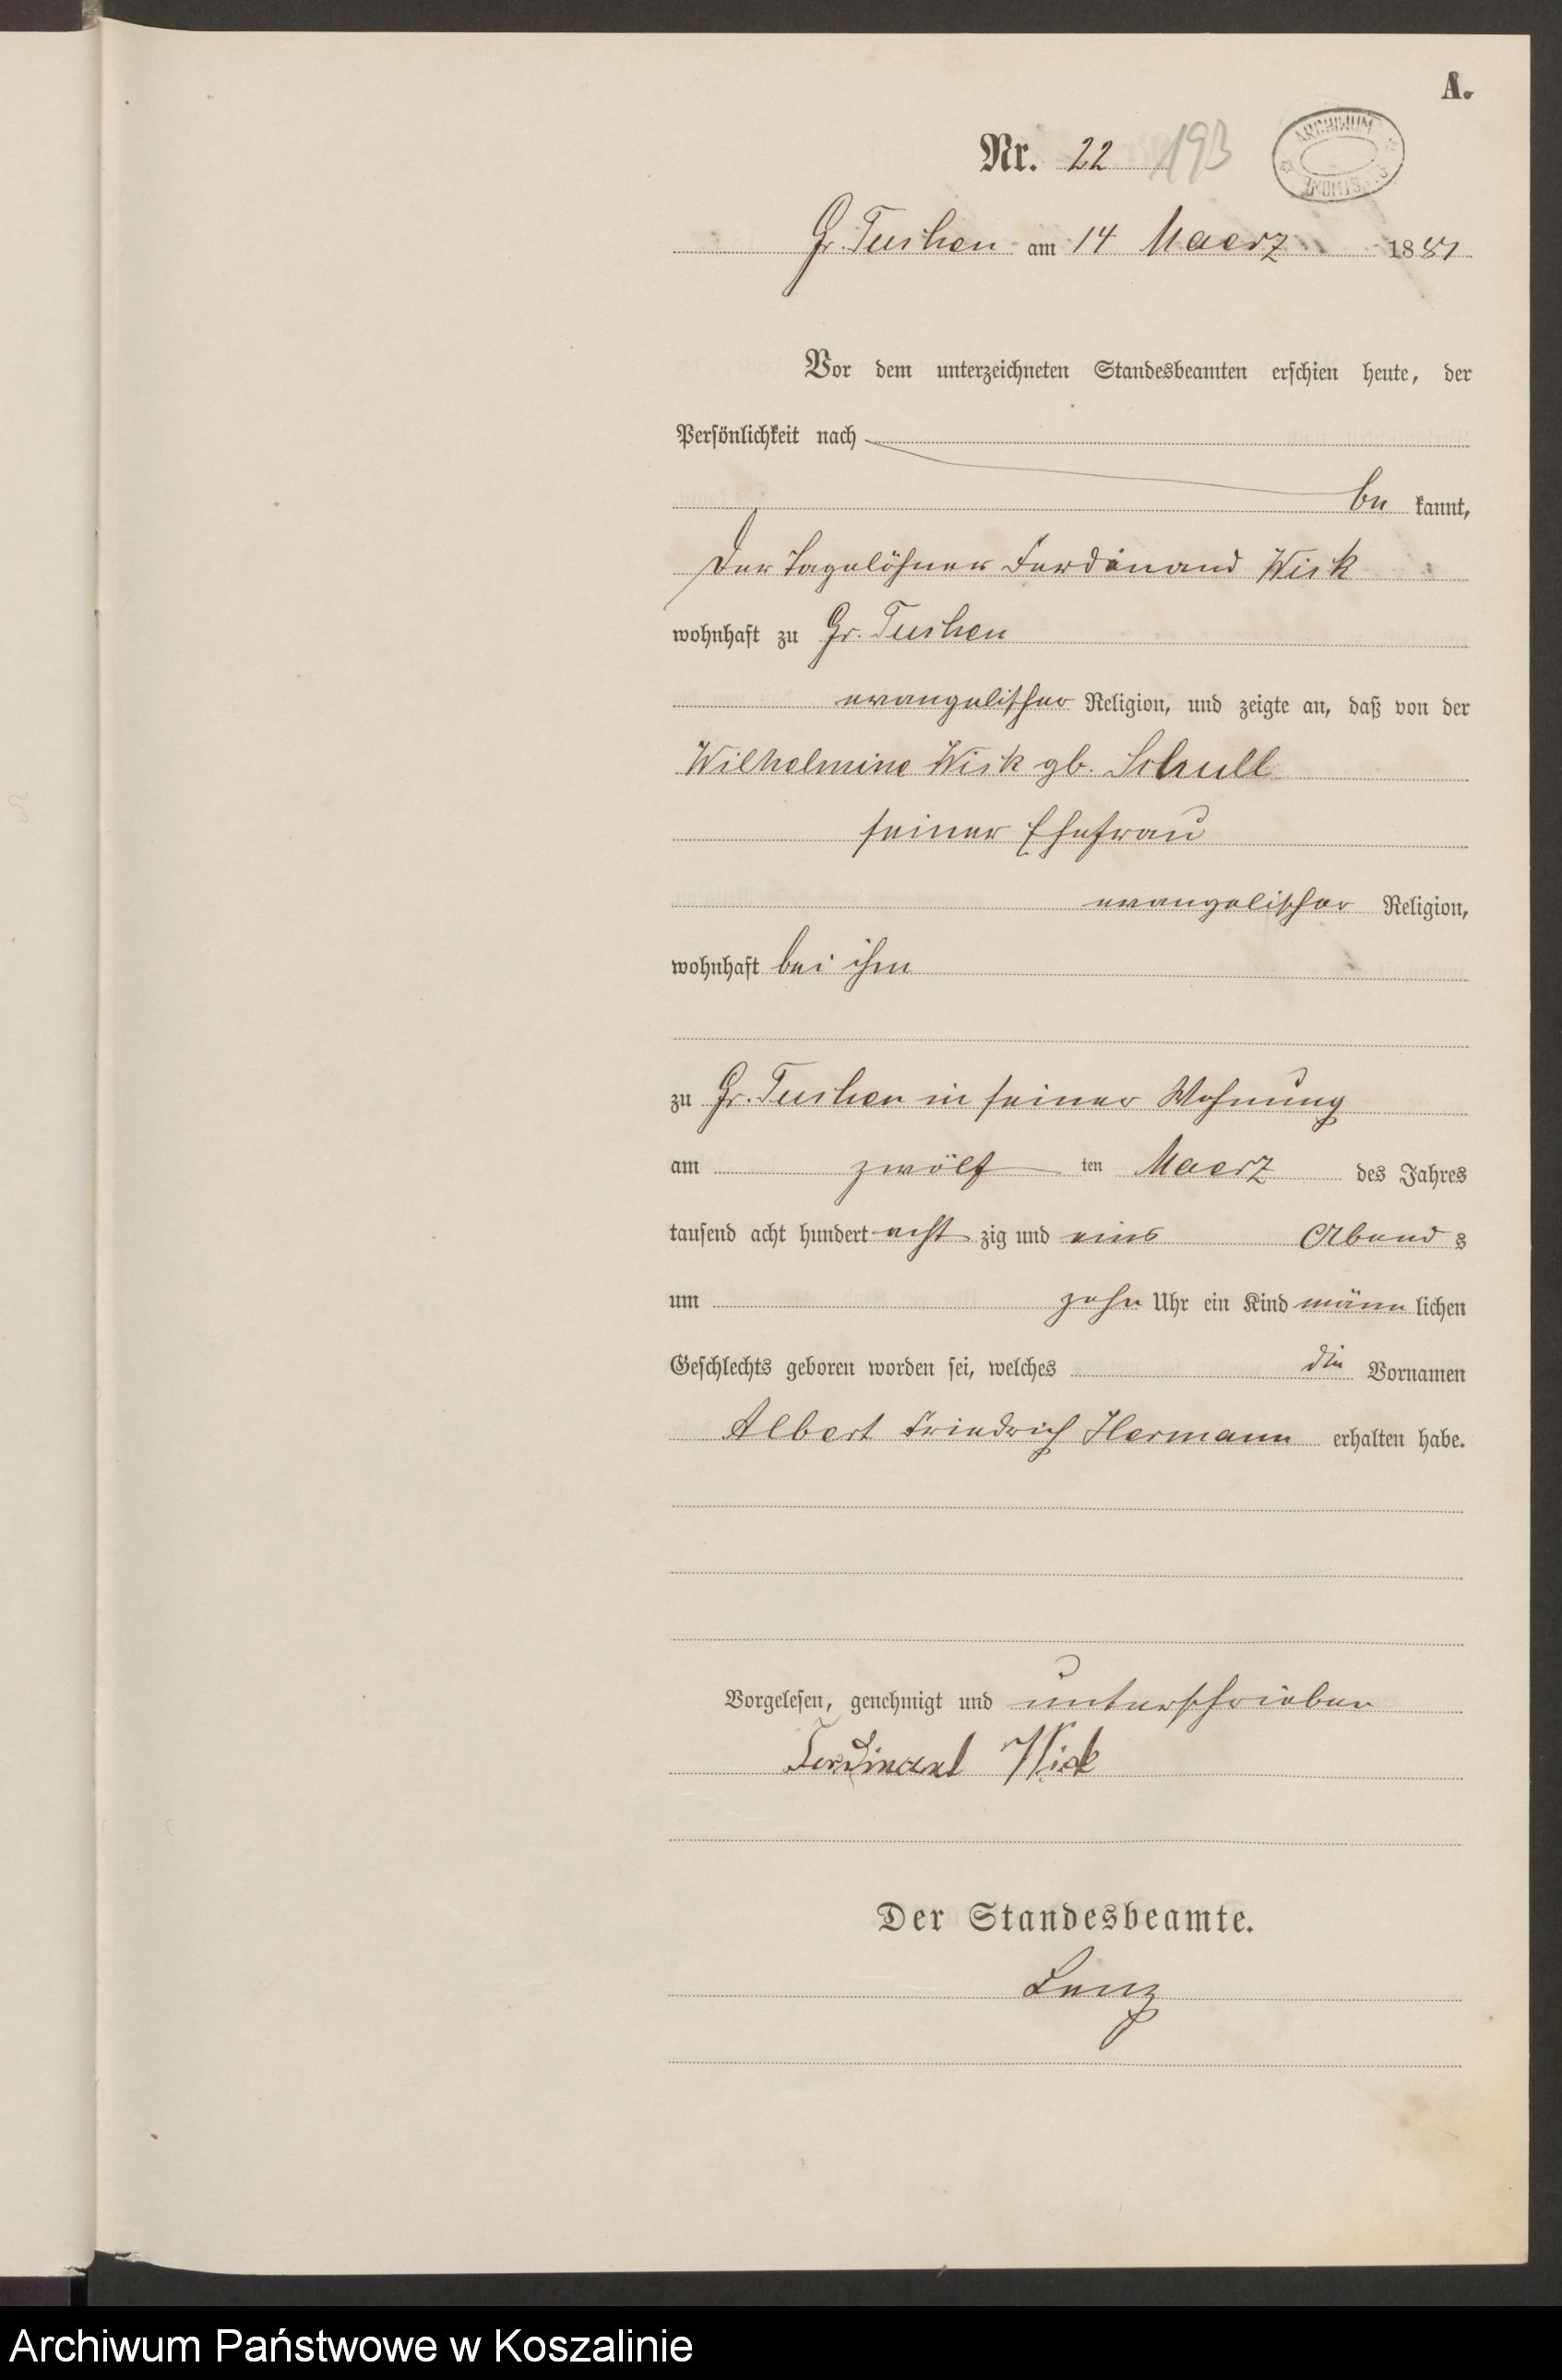 A.
Nr. 22 193
ARCHIWUM
Gr. Tuchen am 14 Maerz 1881
Vor dem unterzeichneten Standesbeamten erschien heute, der
Persönlichkeit nach
be kannt,
der Tagelöhner Ferdinand Wick
wohnhaft zu Gr. Tuchen
evangelischer Religion, und zeigte an, daß von der
Wilhelmine Wick gb. Schull
seiner Ehefrau
evangelischer Religion,
wohnhaft bei ihm
zu Gr. Tuchen in seiner Wohnung
am zwölf ten Maerz des Jahres
tausend acht hundert acht zig und eins Abend s
um zehn Uhr ein Kind männ lichen
Geschlechts geboren worden sei, welches die Vornamen
Albert Friedrich Hermann erhalten habe.
Vorgelesen, genehmigt und unterschrieben
Ferdinand Wick
Der Standesbeamte.
Lenz
Archiwum Państwowe w Koszalinie